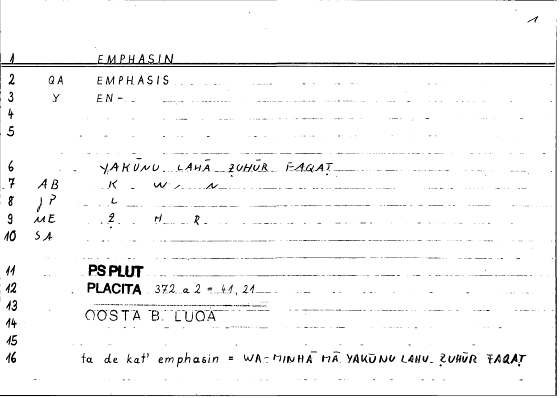 1
1 EMPHASIN
2 QA EMPHASIS
3 Y EN-
4
5
6 YAKŪNU LAHĀ ẒUHŪR FAQAṬ
7 AB K W N
8 JP L
9 ME Ẓ H R
10 SA
11 PS PLUT
12 PLACITA 372 a 2 = 41, 21
13
14 QOSTA B. LUQA
15
16 ta de kat' emphasin = WA-MINHĀ MĀ YAKŪNU LAHU ẒUHŪR FAQAṬ